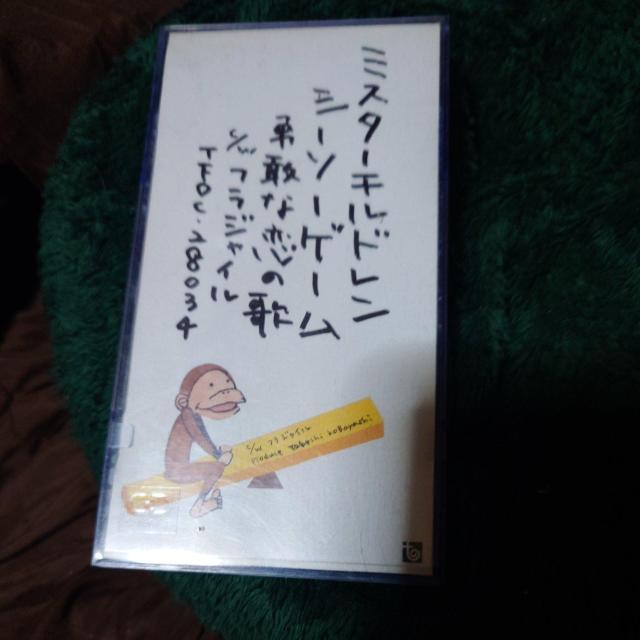 ミスターチルドレン
シーソーゲーム
勇敢な恋の歌
c/w フラジャイル
TFDC-28034
c/w フラジャイル